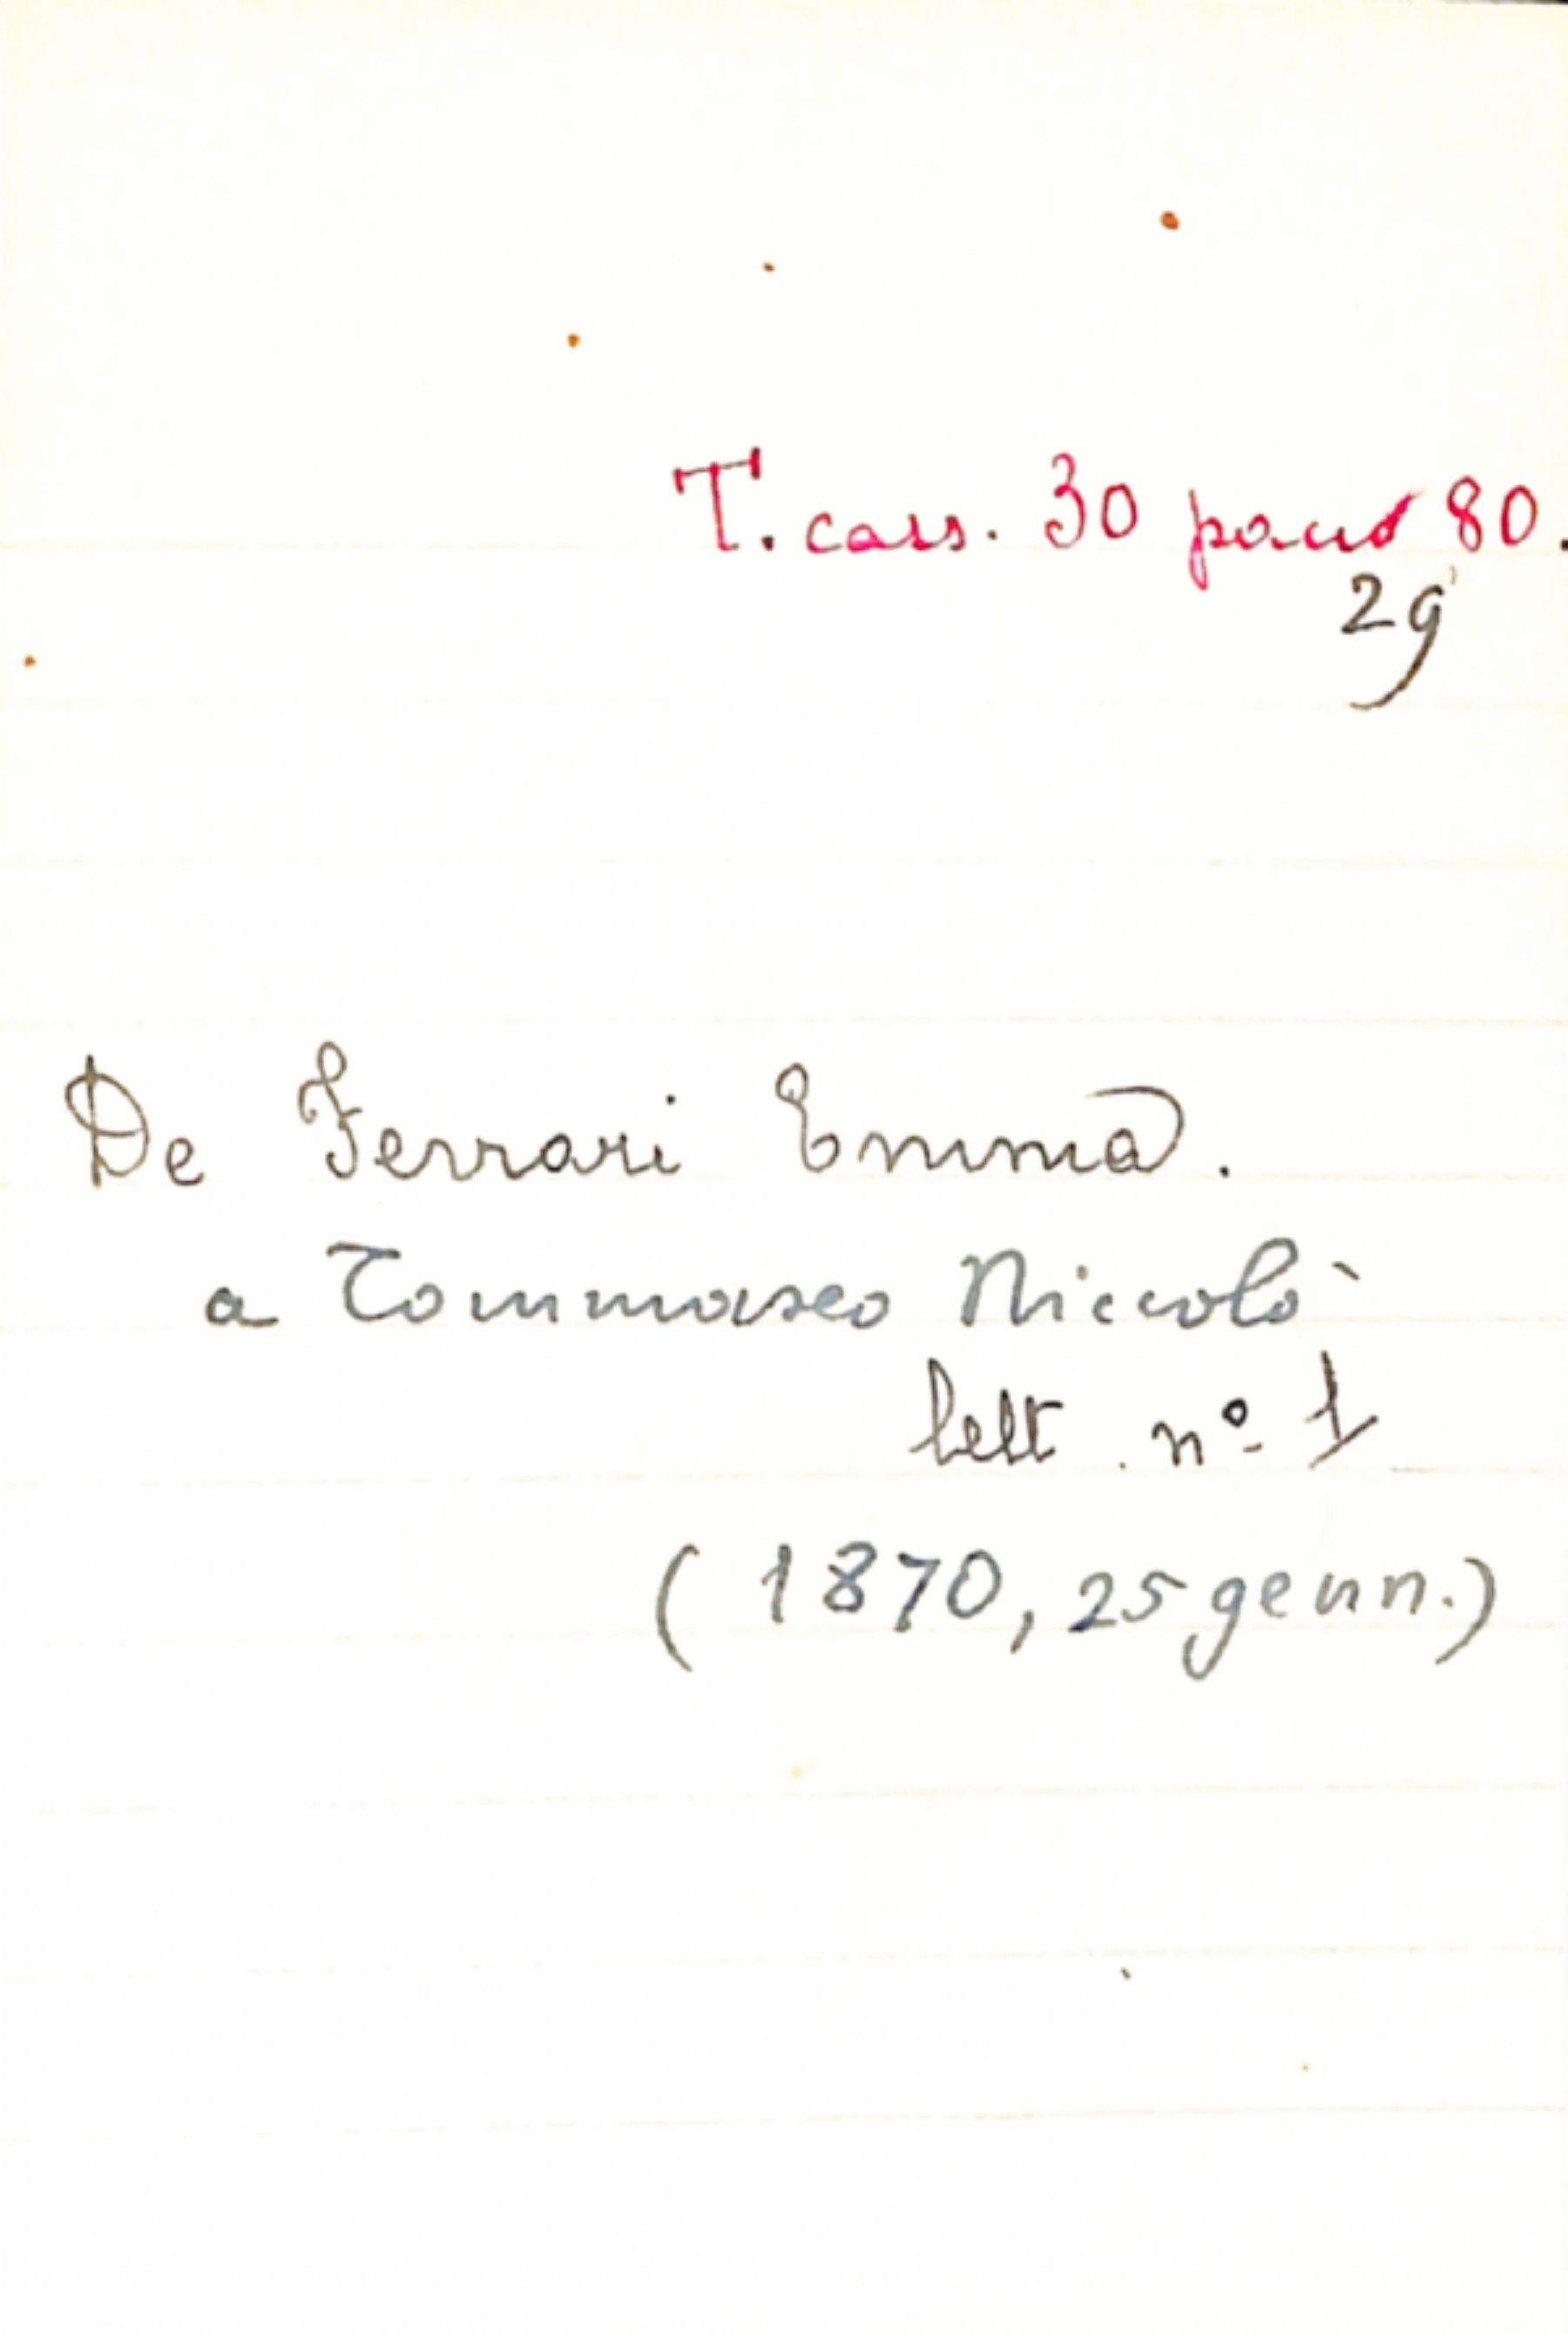 T. cass. 30 pacco 80.
29
De Ferrari Emma.
a Tommaseo Niccolò
lett. nº 1
(1870, 25 genn.)